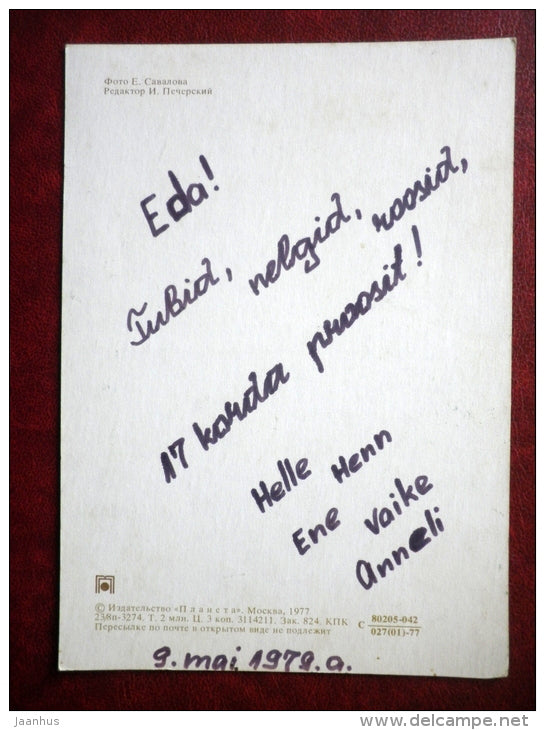 Фото Е. Савалова
Редактор И. Печерский
Eda!
Tulbid, nelgid, roosid,
17 korda proosit!
Helle Henn
Ene Vaike
Anneli
© Издательство «Планета». Москва, 1977
23/8п-3274. Т. 2 млн. Ц. 3 коп. 3114211. Зак. 824. КПК
Пересылке по почте в открытом виде не подлежит
С 80205-042
027(01)-77
9. mai 1979. a.
Jaanhus
www.delcampe.net